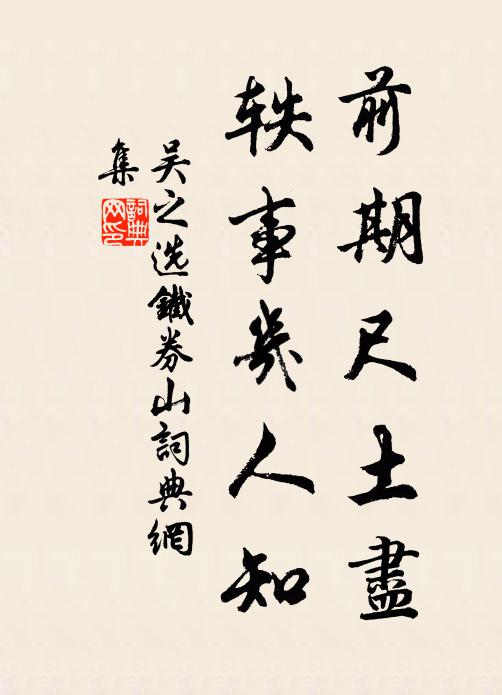 前期尺土盡
軼事幾人知
吴之选鐵券山詞典網
集
詞典網印